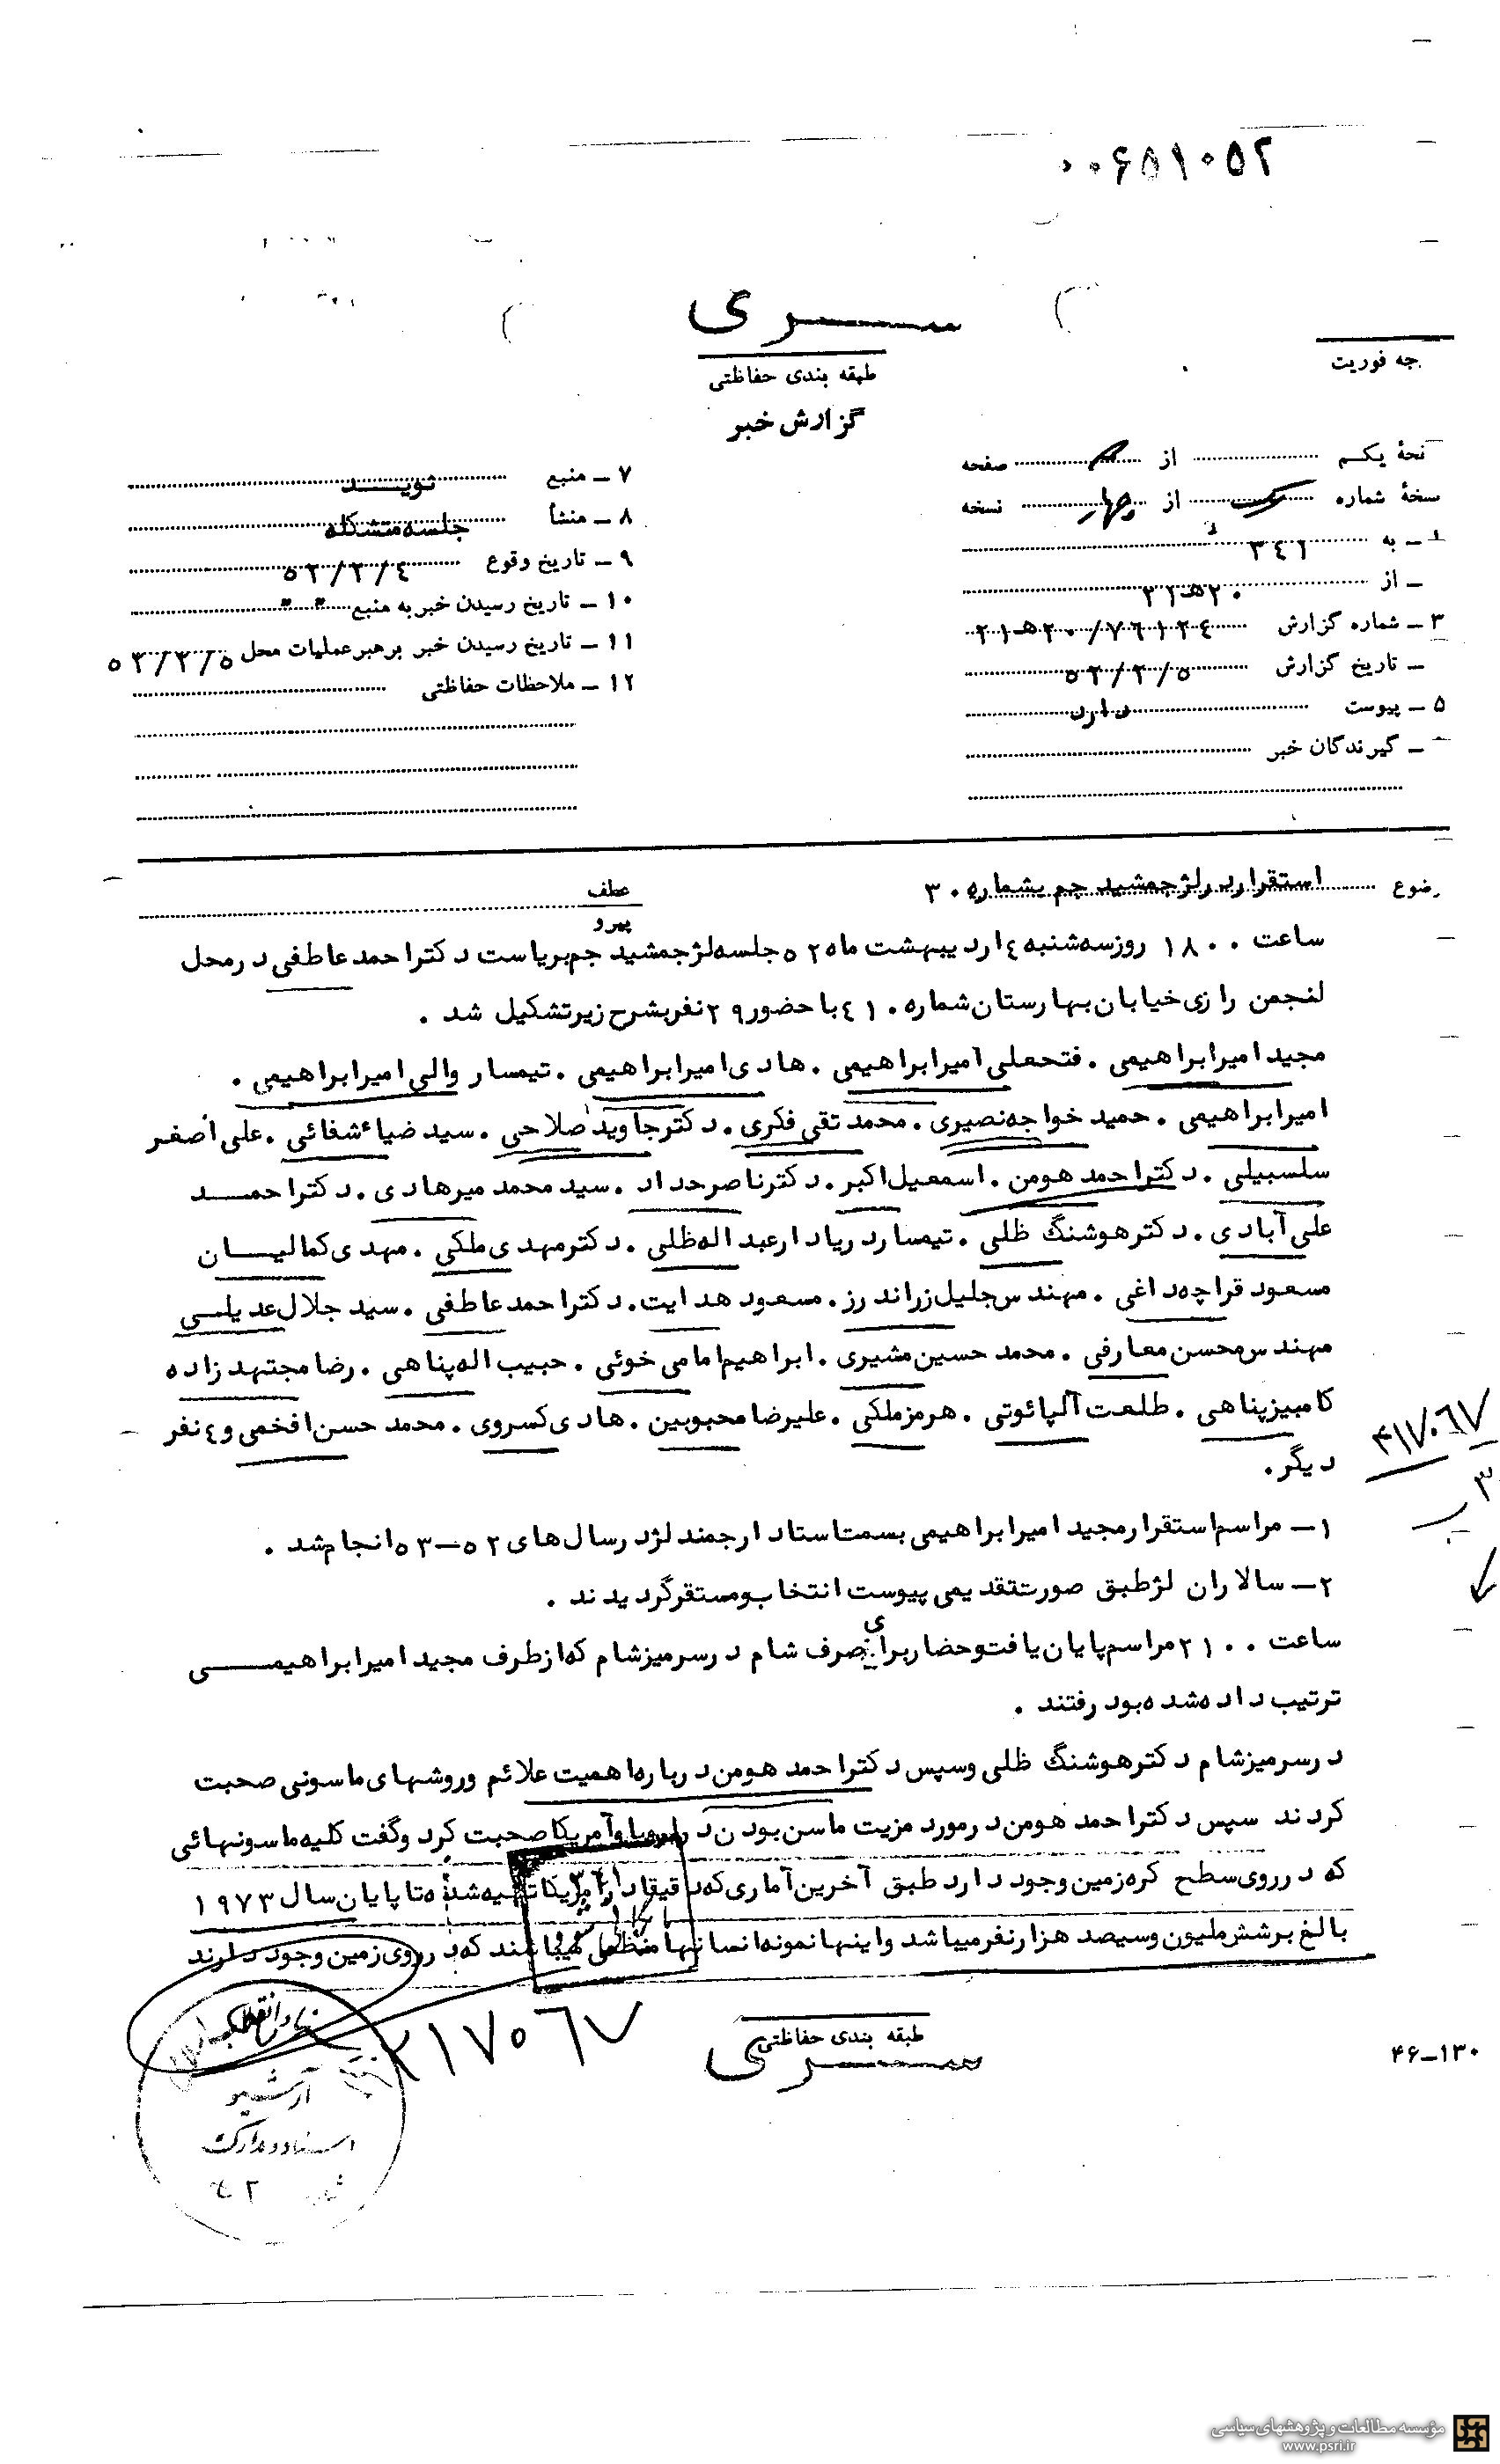 ۰۰۶۵۱۰۵۲
سری
طبقه بندی حفاظتی
گزارش خبر
جه فوریت
نحهٔ یکم از صفحه
سخهٔ شماره یک از چهار نسخه
به ۳٤۱
از ۲۰ه‍۲۱
۳ – شماره گزارش ۲۱ه‍۲۰/۷٦۱۲٤
– تاریخ گزارش ۵۲/۲/۵
۵ – پیوست دارد
– گیرندگان خبر
۷ – منبع
۸ – منشأ جلسه متشکله
۹ – تاریخ وقوع ۵۲/۲/٤
۱۰ – تاریخ رسیدن خبر به منبع " "
۱۱ – تاریخ رسیدن خبر برهبر عملیات محل ۵۲/۲/۵
۱۲ – ملاحظات حفاظتی
رضوع استقرار در لژ جمشید جم بشماره ۳۰
عطف
پیرو
ساعت ۱۸۰۰ روز سه شنبه ٤ اردیبهشت ماه ۵۲ جلسه لژ جمشید جم بریاست دکتر احمد عاطفی در محل
لنجمن رازی خیابان بهارستان شماره ٤۱۰ با حضور ۲۹ نفر بشرح زیر تشکیل شد .
مجید امیرابراهیمی . فتحعلی امیرابراهیمی . هادی امیرابراهیمی . تیمسار والی امیرابراهیمی .
امیرابراهیمی . حمید خواجه نصیری . محمد تقی فکری . دکتر جاوید صلاحی . سید ضیاء شفائی . علی اصغر
سلسبیلی . دکتر احمد هومن . اسمعیل اکبر . دکتر ناصر حداد . سید محمد میرهادی . دکتر احمد
علی آبادی . دکتر هوشنگ ظلی . تیمسار دریادار عبداله ظلی . دکتر مهدی ملکی . مهدی کمالیان
مسعود قراچه داغی . مهندس جلیل زراندرز . مسعود هدایت . دکتر احمد عاطفی . سید جلال عدیلی
مهندس محسن معارفی . محمد حسین مشیری . ابراهیم امامی خوئی . حبیب اله پناهی . رضا مجتهدزاده
کامبیز پناهی . طلعت آلپائوتی . هرمز ملکی . علیرضا محبوبین . هادی کسروی . محمد حسن افخمی و ٤ نفر
دیگر .
۴۱۷۰٦۷
۳
۱ – مراسم استقرار مجید امیرابراهیمی بسمت استاد ارجمند لژ در سال های ۵۲–۵۳ انجام شد .
۲ – سالاران لژ طبق صورت تقدیمی پیوست انتخاب و مستقر گردیدند .
ساعت ۲۱۰۰ مراسم پایان یافت و حضار برای صرف شام در سر میز شام که از طرف مجید امیرابراهیمی
ترتیب داده شده بود رفتند .
در سر میز شام دکتر هوشنگ ظلی و سپس دکتر احمد هومن درباره اهمیت علائم و روشهای ماسونی صحبت
کردند سپس دکتر احمد هومن در مورد مزیت ماسن بودن در اروپا و آمریکا صحبت کرد و گفت کلیه ماسونهائی
که در روی سطح کره زمین وجود دارد طبق آخرین آماری که دقیقا در آمریکا تهیه شده تا پایان سال ۱۹۷۳
بالغ بر شش ملیون و سیصد هزار نفر میباشد و اینها نمونه انسانهای میباشند که در روی زمین وجود دارند
۲۱۷۰٦۷
طبقه بندی حفاظتی
سری
۴۶–۱۳۰
آرشیو
اسناد و مدارک
مؤسسه مطالعات و پژوهشهای سیاسی
www.psri.ir